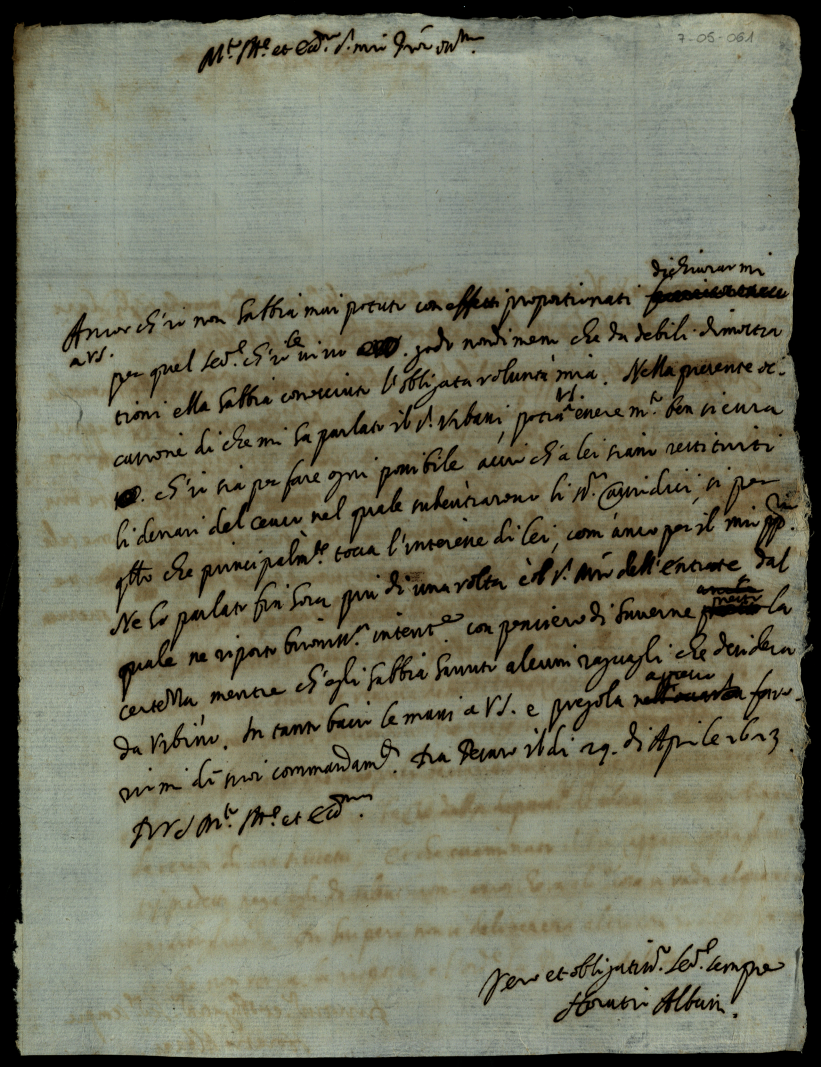 7-05-061
M.to Ill.e et Ecc.mo S.r mio P'rōn oss.mo
dichiararmi
Ancor ch'io non habbia mai potuto con effetti proportionati
a VS. per quel Ser.re ch'io le vivo godo nondimeno che da debili dimostra
tioni ella habbia conosciuta l'obligata voluntà mia. Nella presente oc-
casione di che mi ha parlato il S.r Urbani, potrà VS essere m.to ben sicura
ch'io sia per fare ogni possibile acciò ch'a lei siano restituiti
li denari del censo nel quale subentraranno li SS.ri si per
q̄llo che principalm.te tocca l'interesse di lei, com'anco per il mio pp.rio
Ne ho parlato sin hora più di una volta col S.r Mro dell'Entrate dal
quale ne riporto buoniss.a intent.e con pensiero di haverne presto la
certezza mentre ch'egli habbia havuto alcuni raguagli che desidera
da Urbino. In tanto bacio le mani a VS. e pregola a favo-
rirmi di suoi commandam.ti Da Pesaro il di 29. di Aprile 1623.
Di VS M.to Ill.e et Ecc.ma
Vero et obligatiss.o Ser.re sempre
Horatio Albani.